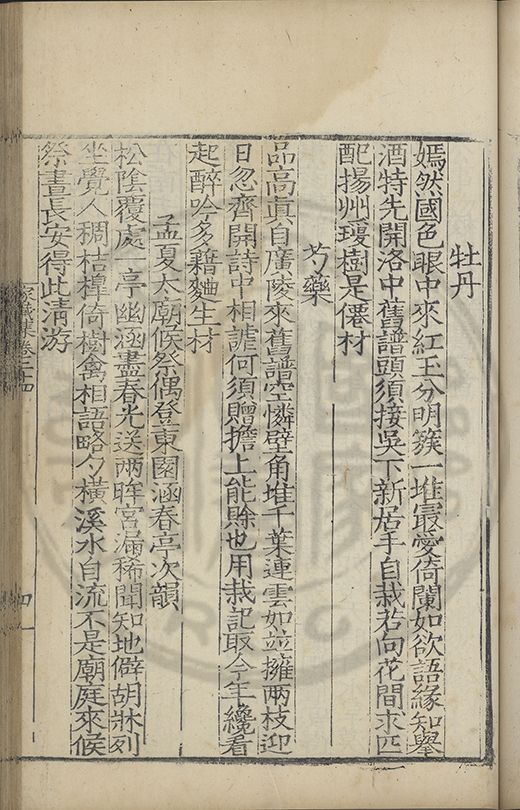 牡丹
嫣然國色眼中來紅玉分明簇一堆最愛倚闌如欲語緣知舉
酒特先開洛中舊譜頭須接吳下新居手自栽若向花間求匹
配揚州瓊樹是僊材
芍藥
品高眞自廣陵來舊譜空憐壁角堆千葉連雲如並擁兩枝迎
日忽齊開詩中相謔何須贈擔上能賒也用栽記取今年纔看
起醉吟多藉麯生材
孟夏太廟候祭偶登東園涵春亭次韻
松陰覆處一亭幽涵盡春光送兩眸宮漏稀聞知地僻胡牀列
坐覺人稠桔橰倚樹禽相語略彴橫溪水自流不是廟庭來候
祭晝長安得此清游
家藏集卷二十四
四